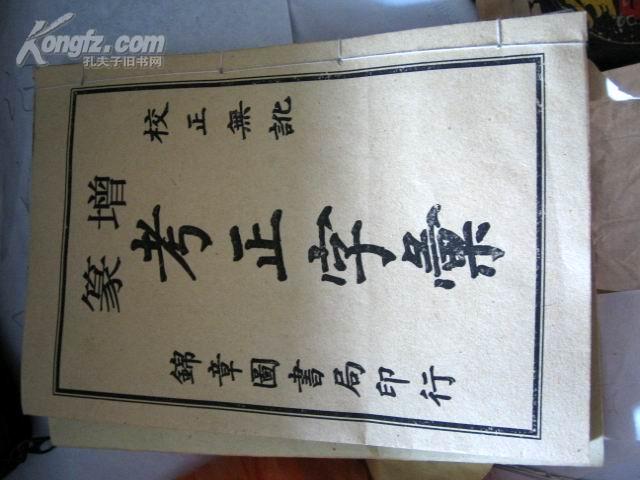 Kongfz.com
孔夫子旧书网
校正無訛
增篆
考正字彙
錦章圖書局印行